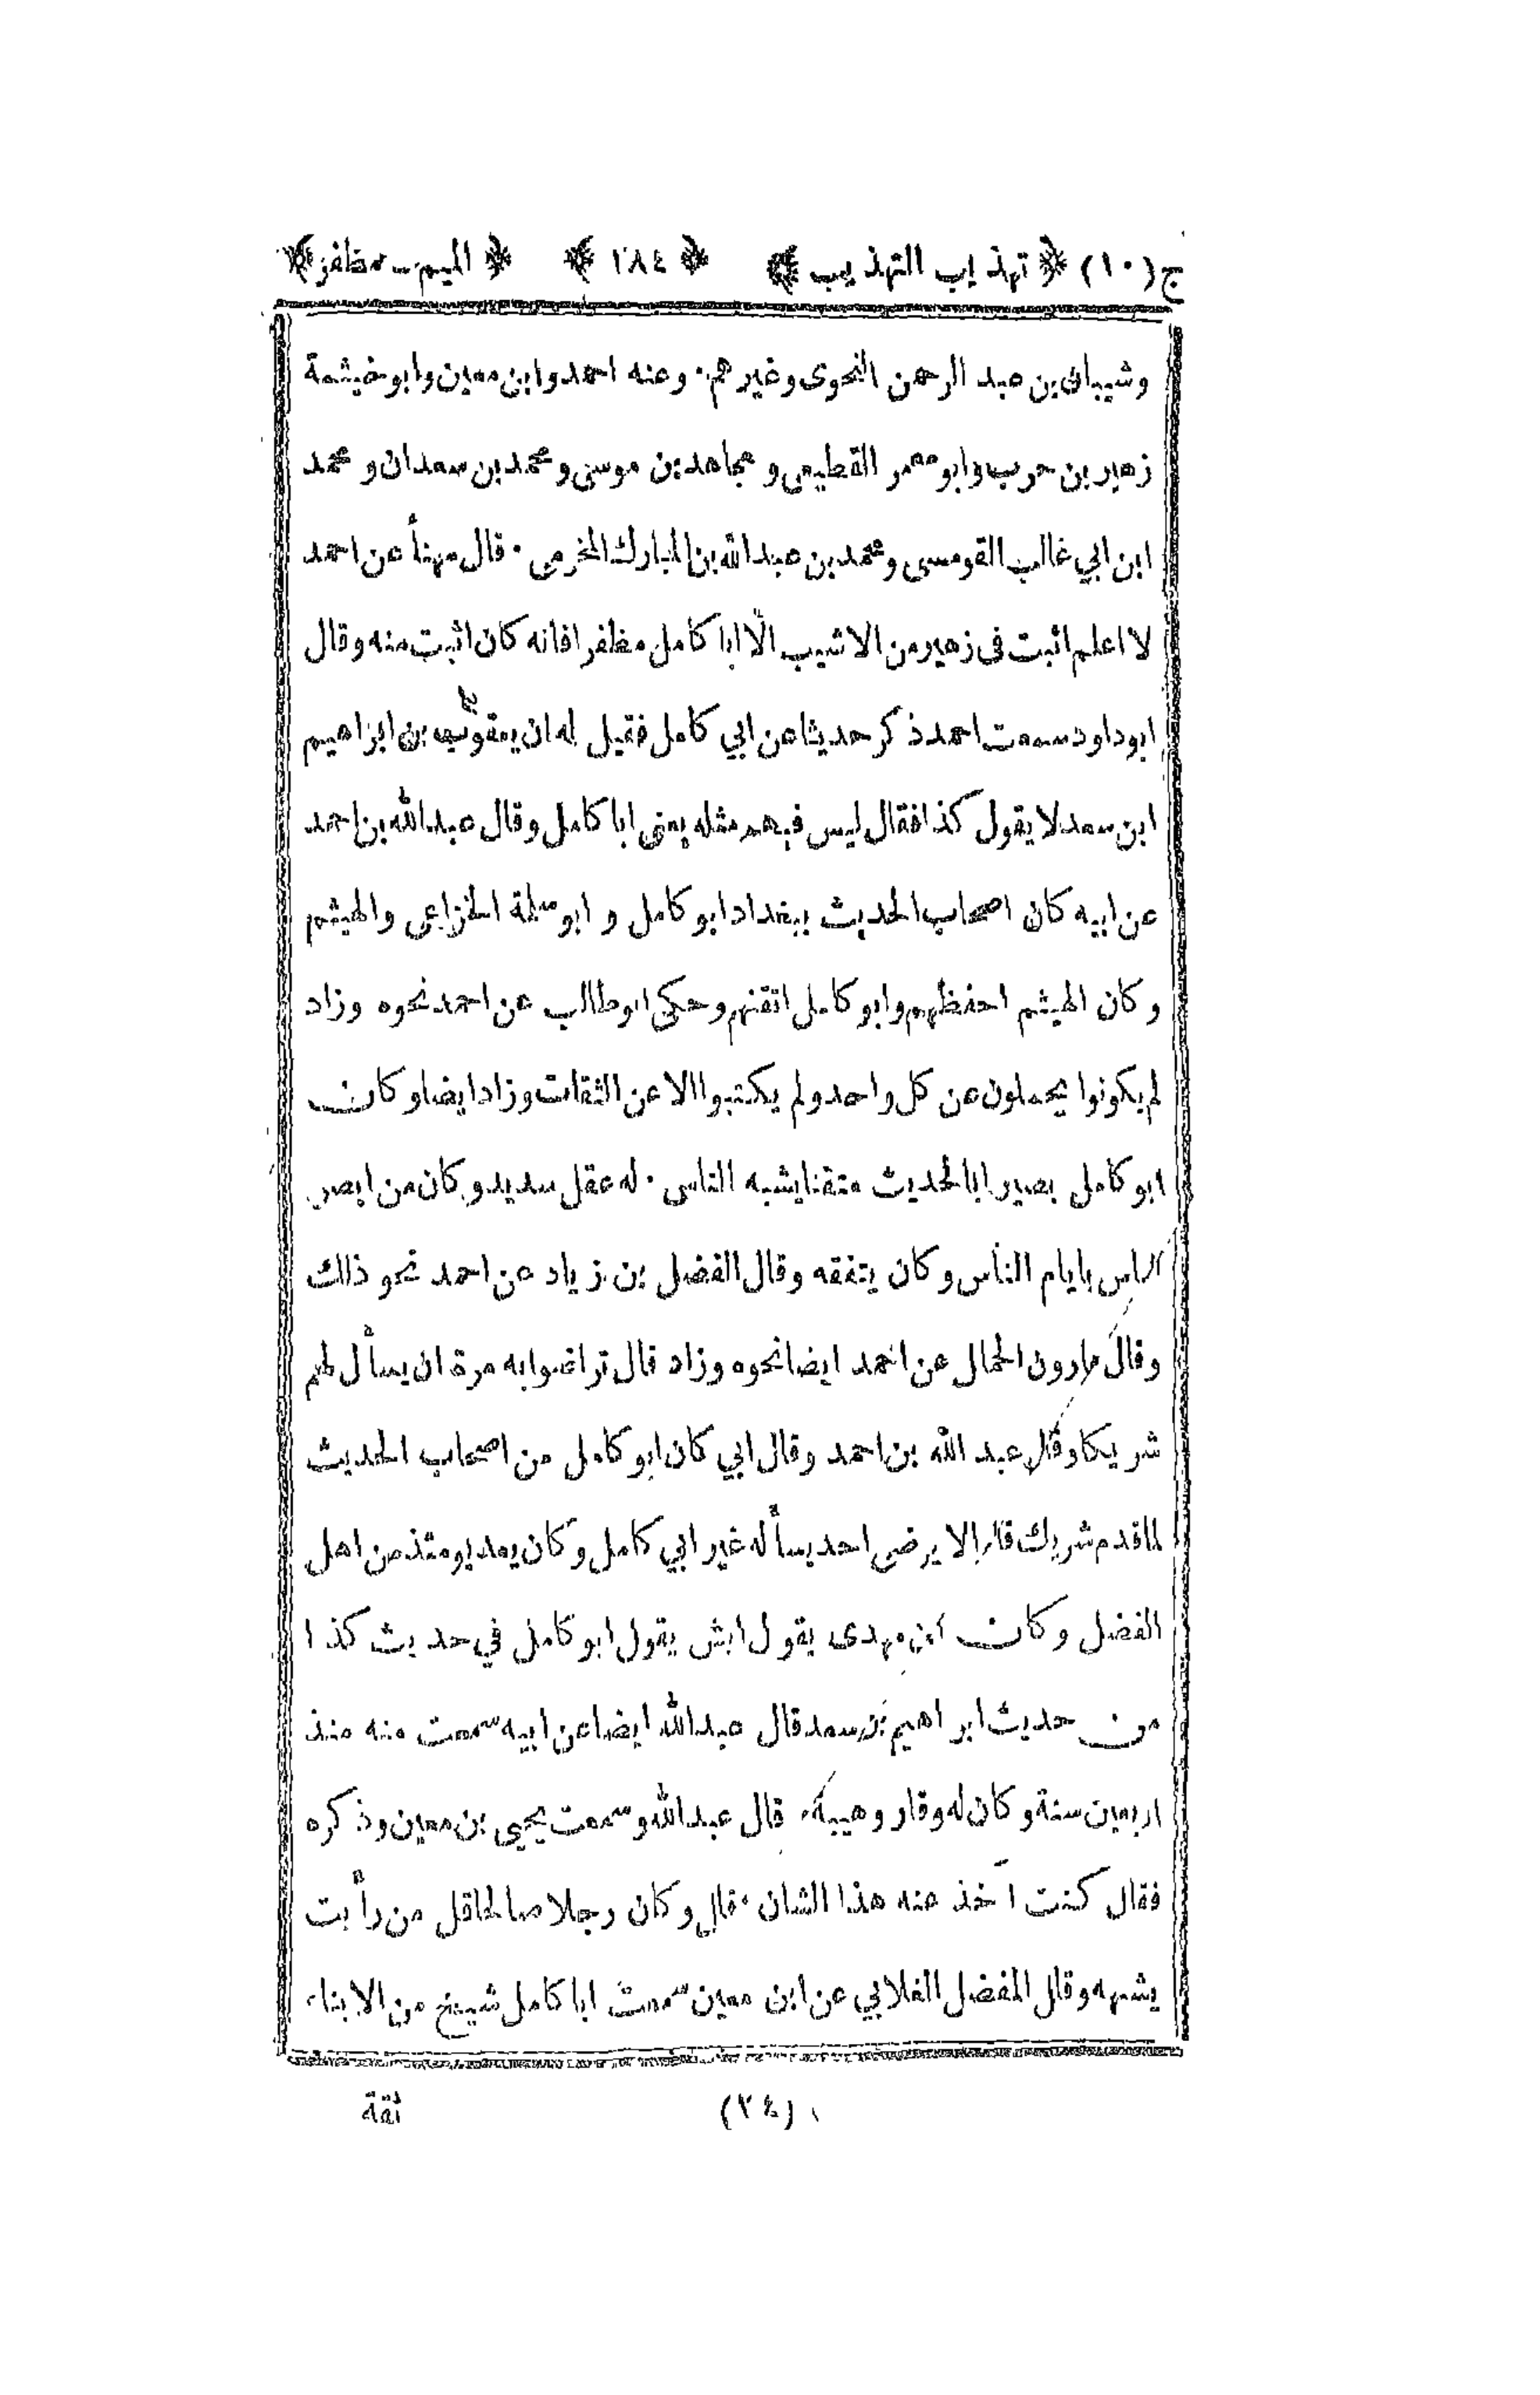 ج(١٠) ﴿ تهذيب التهذيب ﴾ ﴿ ١٨٤ ﴾ ﴿ الميم - مظفر ﴾
وشيبان بن عبد الرحمن النحوى وغيرهم · وعنه احمد وابن معين وابو خيثمة
زهير بن حرب وابو معمر القطيعى و مجاهد بن موسى ومحمد بن سعدان و محمد
ابن ابي غالب القومسى ومحمد بن عبد الله بن المبارك المخرمى · قال مهنأ عن احمد
لا اعلم اثبت فى زهير من الاشيب الّا ابا كامل مظفر افانه كان اثبت منه وقال
ابو داود سمعت احمد ذكر حديثا عن ابي كامل فقيل له ان يعقوب بن ابراهيم
ابن سعد لا يقول كذا فقال ليس فيهم مثله يعنى ابا كامل وقال عبد الله بن احمد
عن ابيه كان اصحاب الحديث ببغداد ابو كامل و ابو سلمة الخزاعى والهيثم
وكان الهيثم احفظهم وابو كامل اتقنهم وحكى ابو طالب عن احمد نحوه وزاد
لم يكونوا يحملون عن كل واحد ولم يكتبوا الا عن الثقات وزاد ايضا وكان
ابو كامل بصيرا بالحديث متقنا يشبه الناس · له عقل سديد وكان من ابصر
الناس بايام الناس وكان يتفقه وقال الفضل بن زياد عن احمد نحو ذلك
وقال هارون الحمال عن احمد ايضا نحوه وزاد قال تراضوا به مرة ان يسأل لهم
شريكا وقال عبد الله بن احمد وقال ابي كان ابو كامل من اصحاب الحديث
لما قدم شريك قال لا يرضى احد يسأله غير ابي كامل وكان يعد يومئذ من اهل
الفضل وكان ابن مهدى يقول ايش يقول ابو كامل في حديث كذا
من حديث ابراهيم بن سعد قال عبد الله ايضا عن ابيه سمعت منه منذ
اربعين سنة وكان له وقار وهيبة · قال عبد الله وسمعت يحيى بن معين وذكره
فقال كنت آخذ عنه هذا الشان · قال وكان رجلا صالحا قل من رأيت
يشبهه وقال المفضل الغلابي عن ابن معين سمعت ابا كامل شيخ من الابناء
(٢٤) ثقة